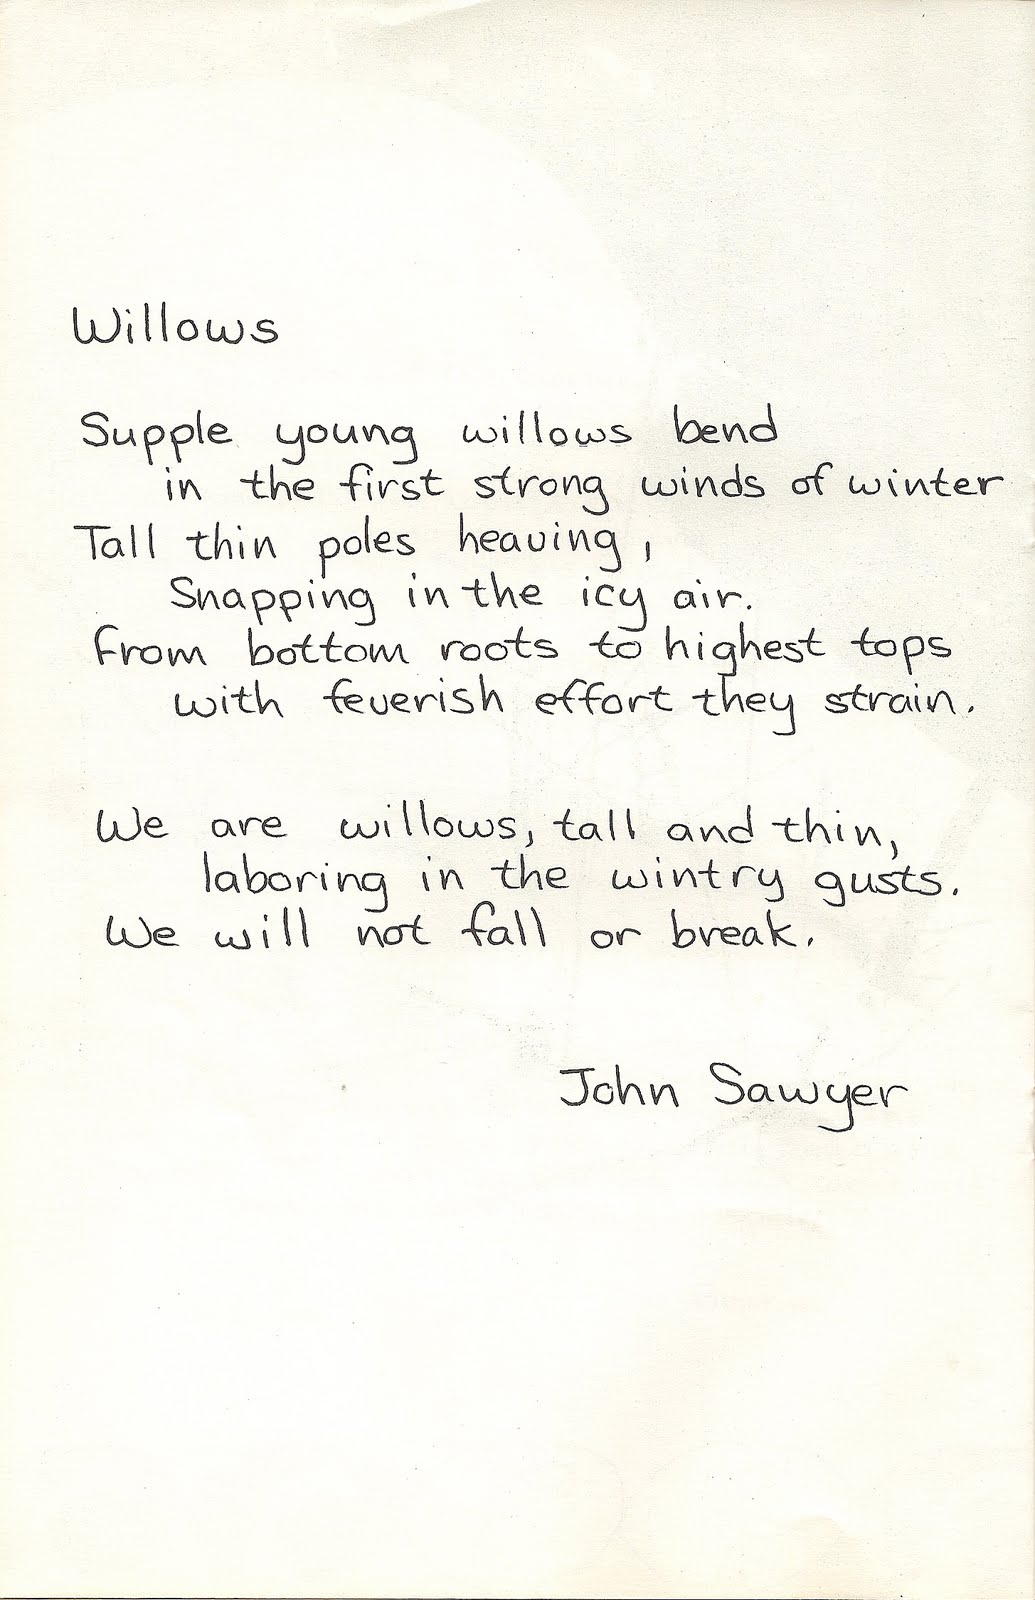 Willows
Supple young willows bend
in the first strong winds of winter
Tall thin poles heaving,
Snapping in the icy air.
From bottom roots to highest tops
with feverish effort they strain.
We are willows, tall and thin,
laboring in the wintry gusts.
We will not fall or break.
John Sawyer